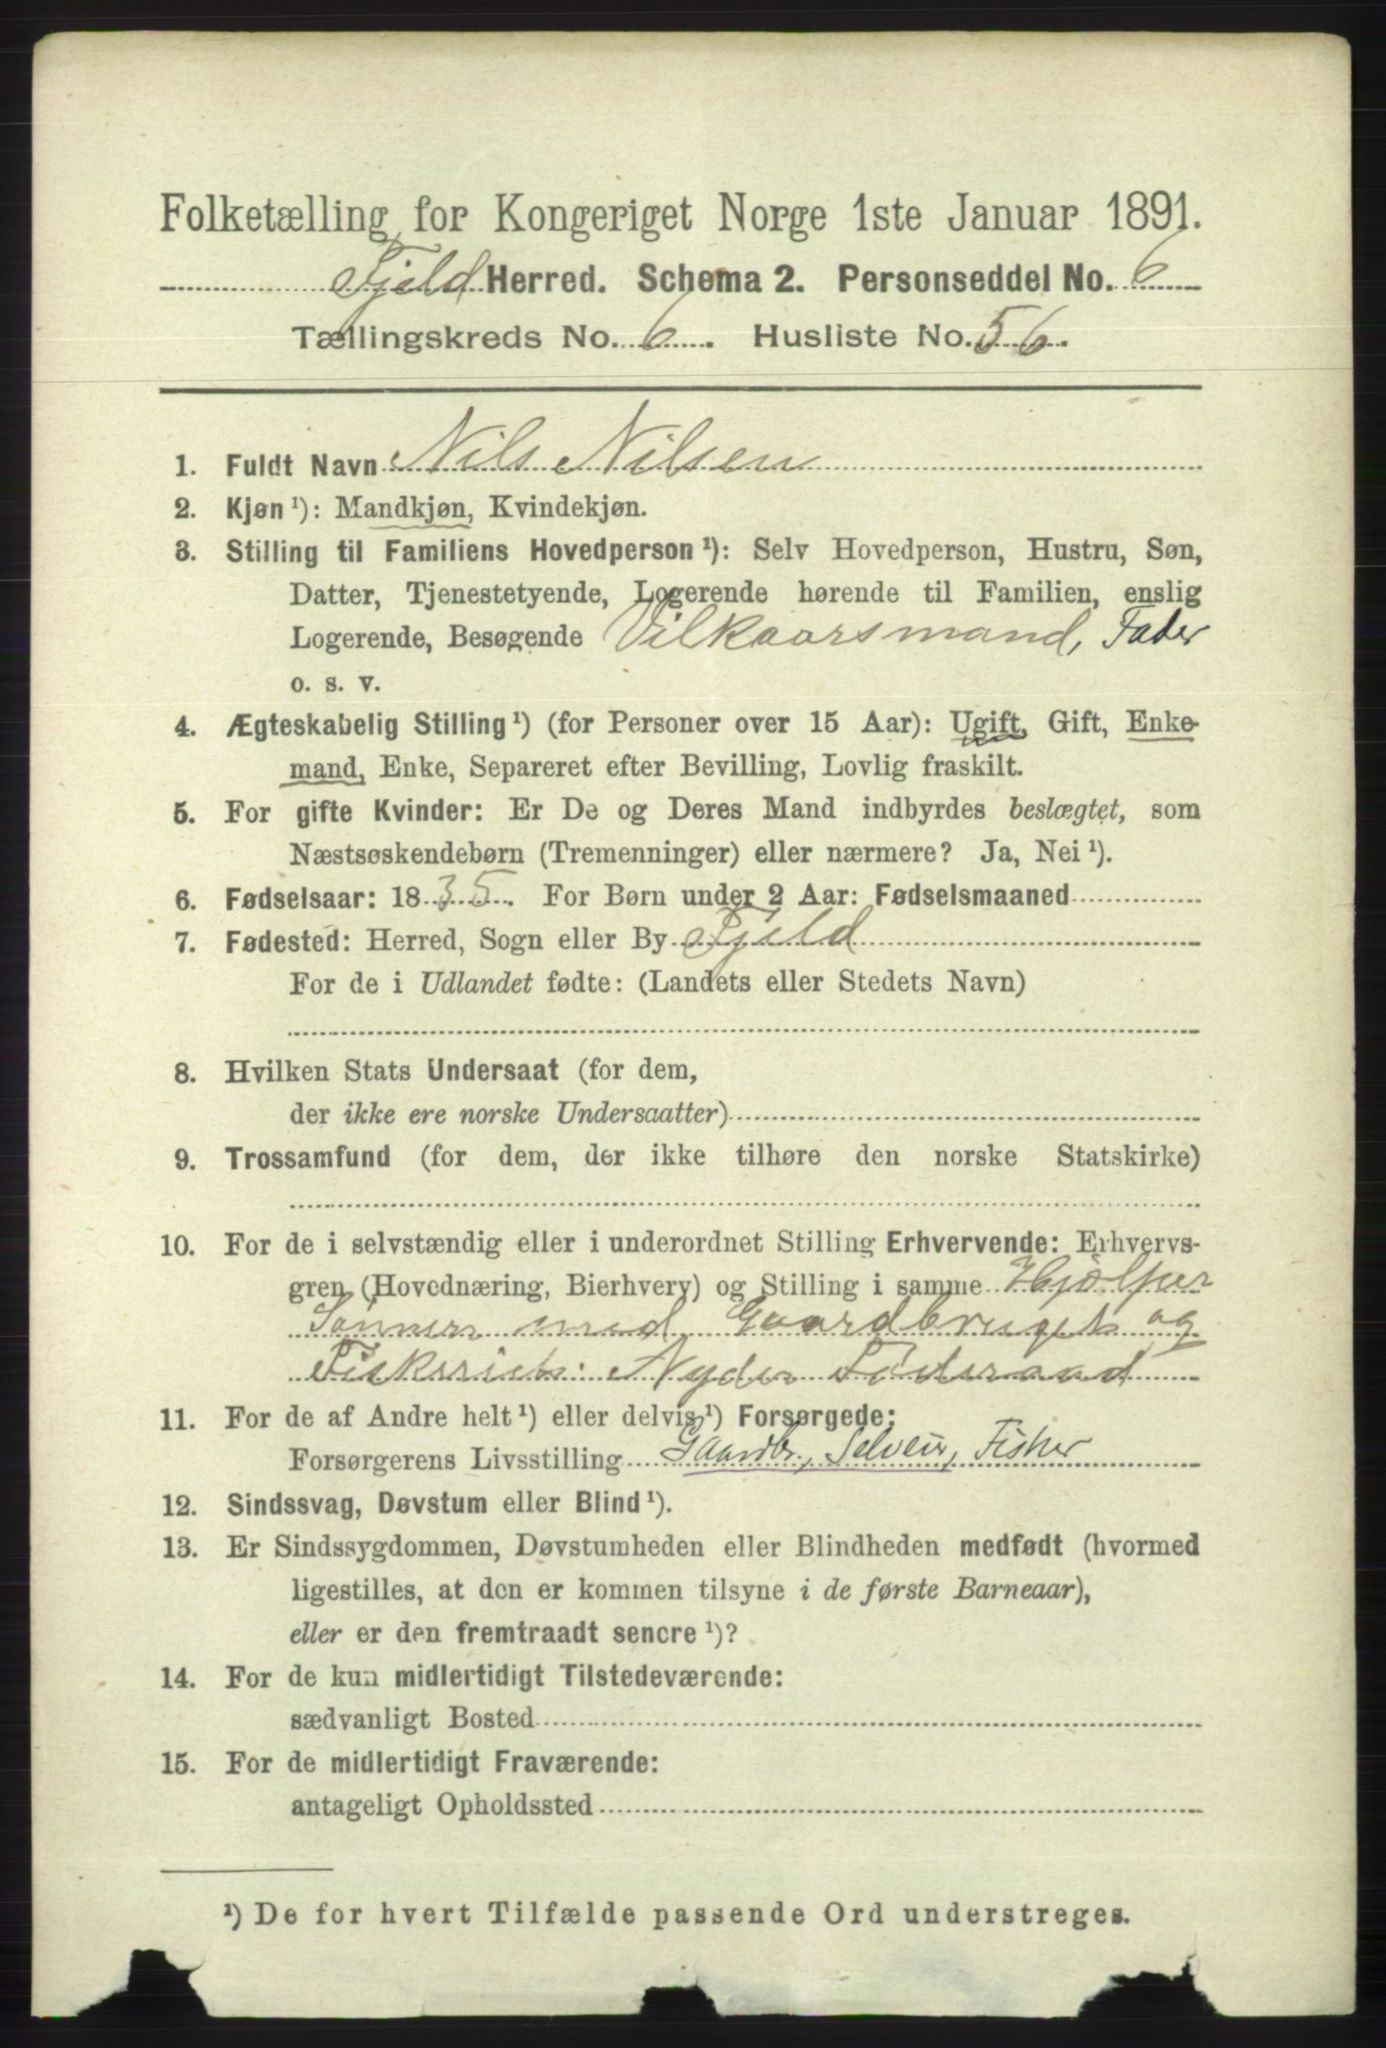 Folketælling for Kongeriget Norge 1ste Januar 1891.
Fjeld Herred. Schema 2. Personseddel No. 6
Tællingskreds No. 6. Husliste No. 56.
1. Fuldt Navn Nils Nilsen
2. Kjøn ¹): Mandkjøn, Kvindekjøn.
3. Stilling til Familiens Hovedperson ¹): Selv Hovedperson, Hustru, Søn,
Datter, Tjenestetyende, Logerende hørende til Familien, enslig
Logerende, Besøgende Vilkaarsmand, Fader
o. s. v.
4. Ægteskabelig Stilling ¹) (for Personer over 15 Aar): Ugift, Gift, Enke-
mand, Enke, Separeret efter Bevilling, Lovlig fraskilt.
5. For gifte Kvinder: Er De og Deres Mand indbyrdes beslægtet, som
Næstsøskendebørn (Tremenninger) eller nærmere? Ja, Nei ¹).
6. Fødselsaar: 1835. For Børn under 2 Aar: Fødselsmaaned
7. Fødested: Herred, Sogn eller By Fjeld
For de i Udlandet fødte: (Landets eller Stedets Navn)
8. Hvilken Stats Undersaat (for dem,
der ikke ere norske Undersaatter)
9. Trossamfund (for dem, der ikke tilhøre den norske Statskirke)
10. For de i selvstændig eller i underordnet Stilling Erhvervende: Erhvervs-
gren (Hovednæring, Bierhverv) og Stilling i samme Hjölper
Sönnen med Gaardbruget og
Fiskeriet. Nyder Föderaad
11. For de af Andre helt ¹) eller delvis ¹) Forsørgede:
Forsørgerens Livsstilling Gaardbr., Selveier, Fisker
12. Sindssvag, Døvstum eller Blind ¹).
13. Er Sindssygdommen, Døvstumheden eller Blindheden medfødt (hvormed
ligestilles, at den er kommen tilsyne i de første Barneaar),
eller er den fremtraadt senere ¹)?
14. For de kun midlertidigt Tilstedeværende:
sædvanligt Bosted
15. For de midlertidigt Fraværende:
antageligt Opholdssted
¹) De for hvert Tilfælde passende Ord understreges.